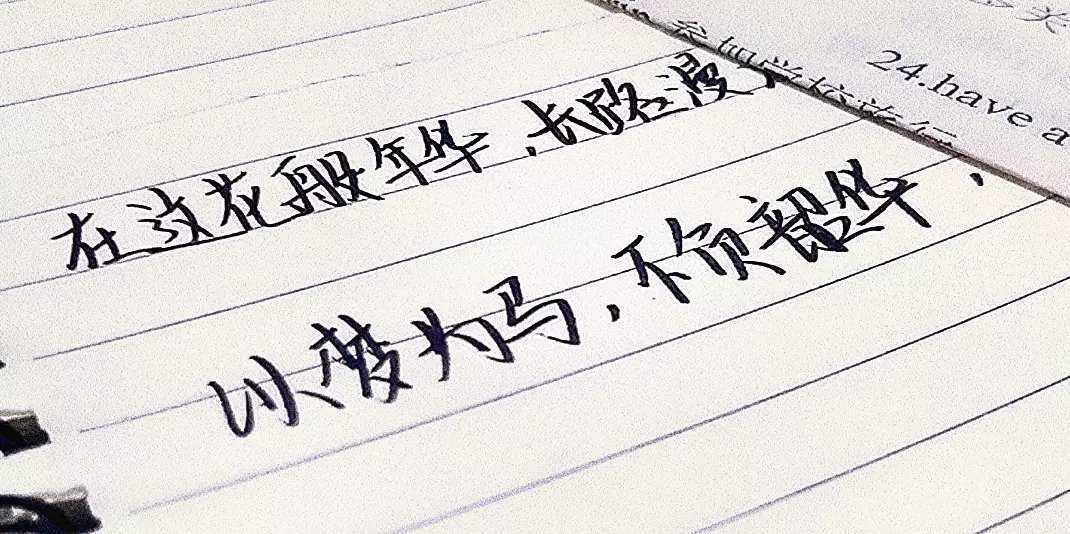 在这花般年华，长路漫，
以梦为马，不负韶华，
参加学校旅行
24.have a